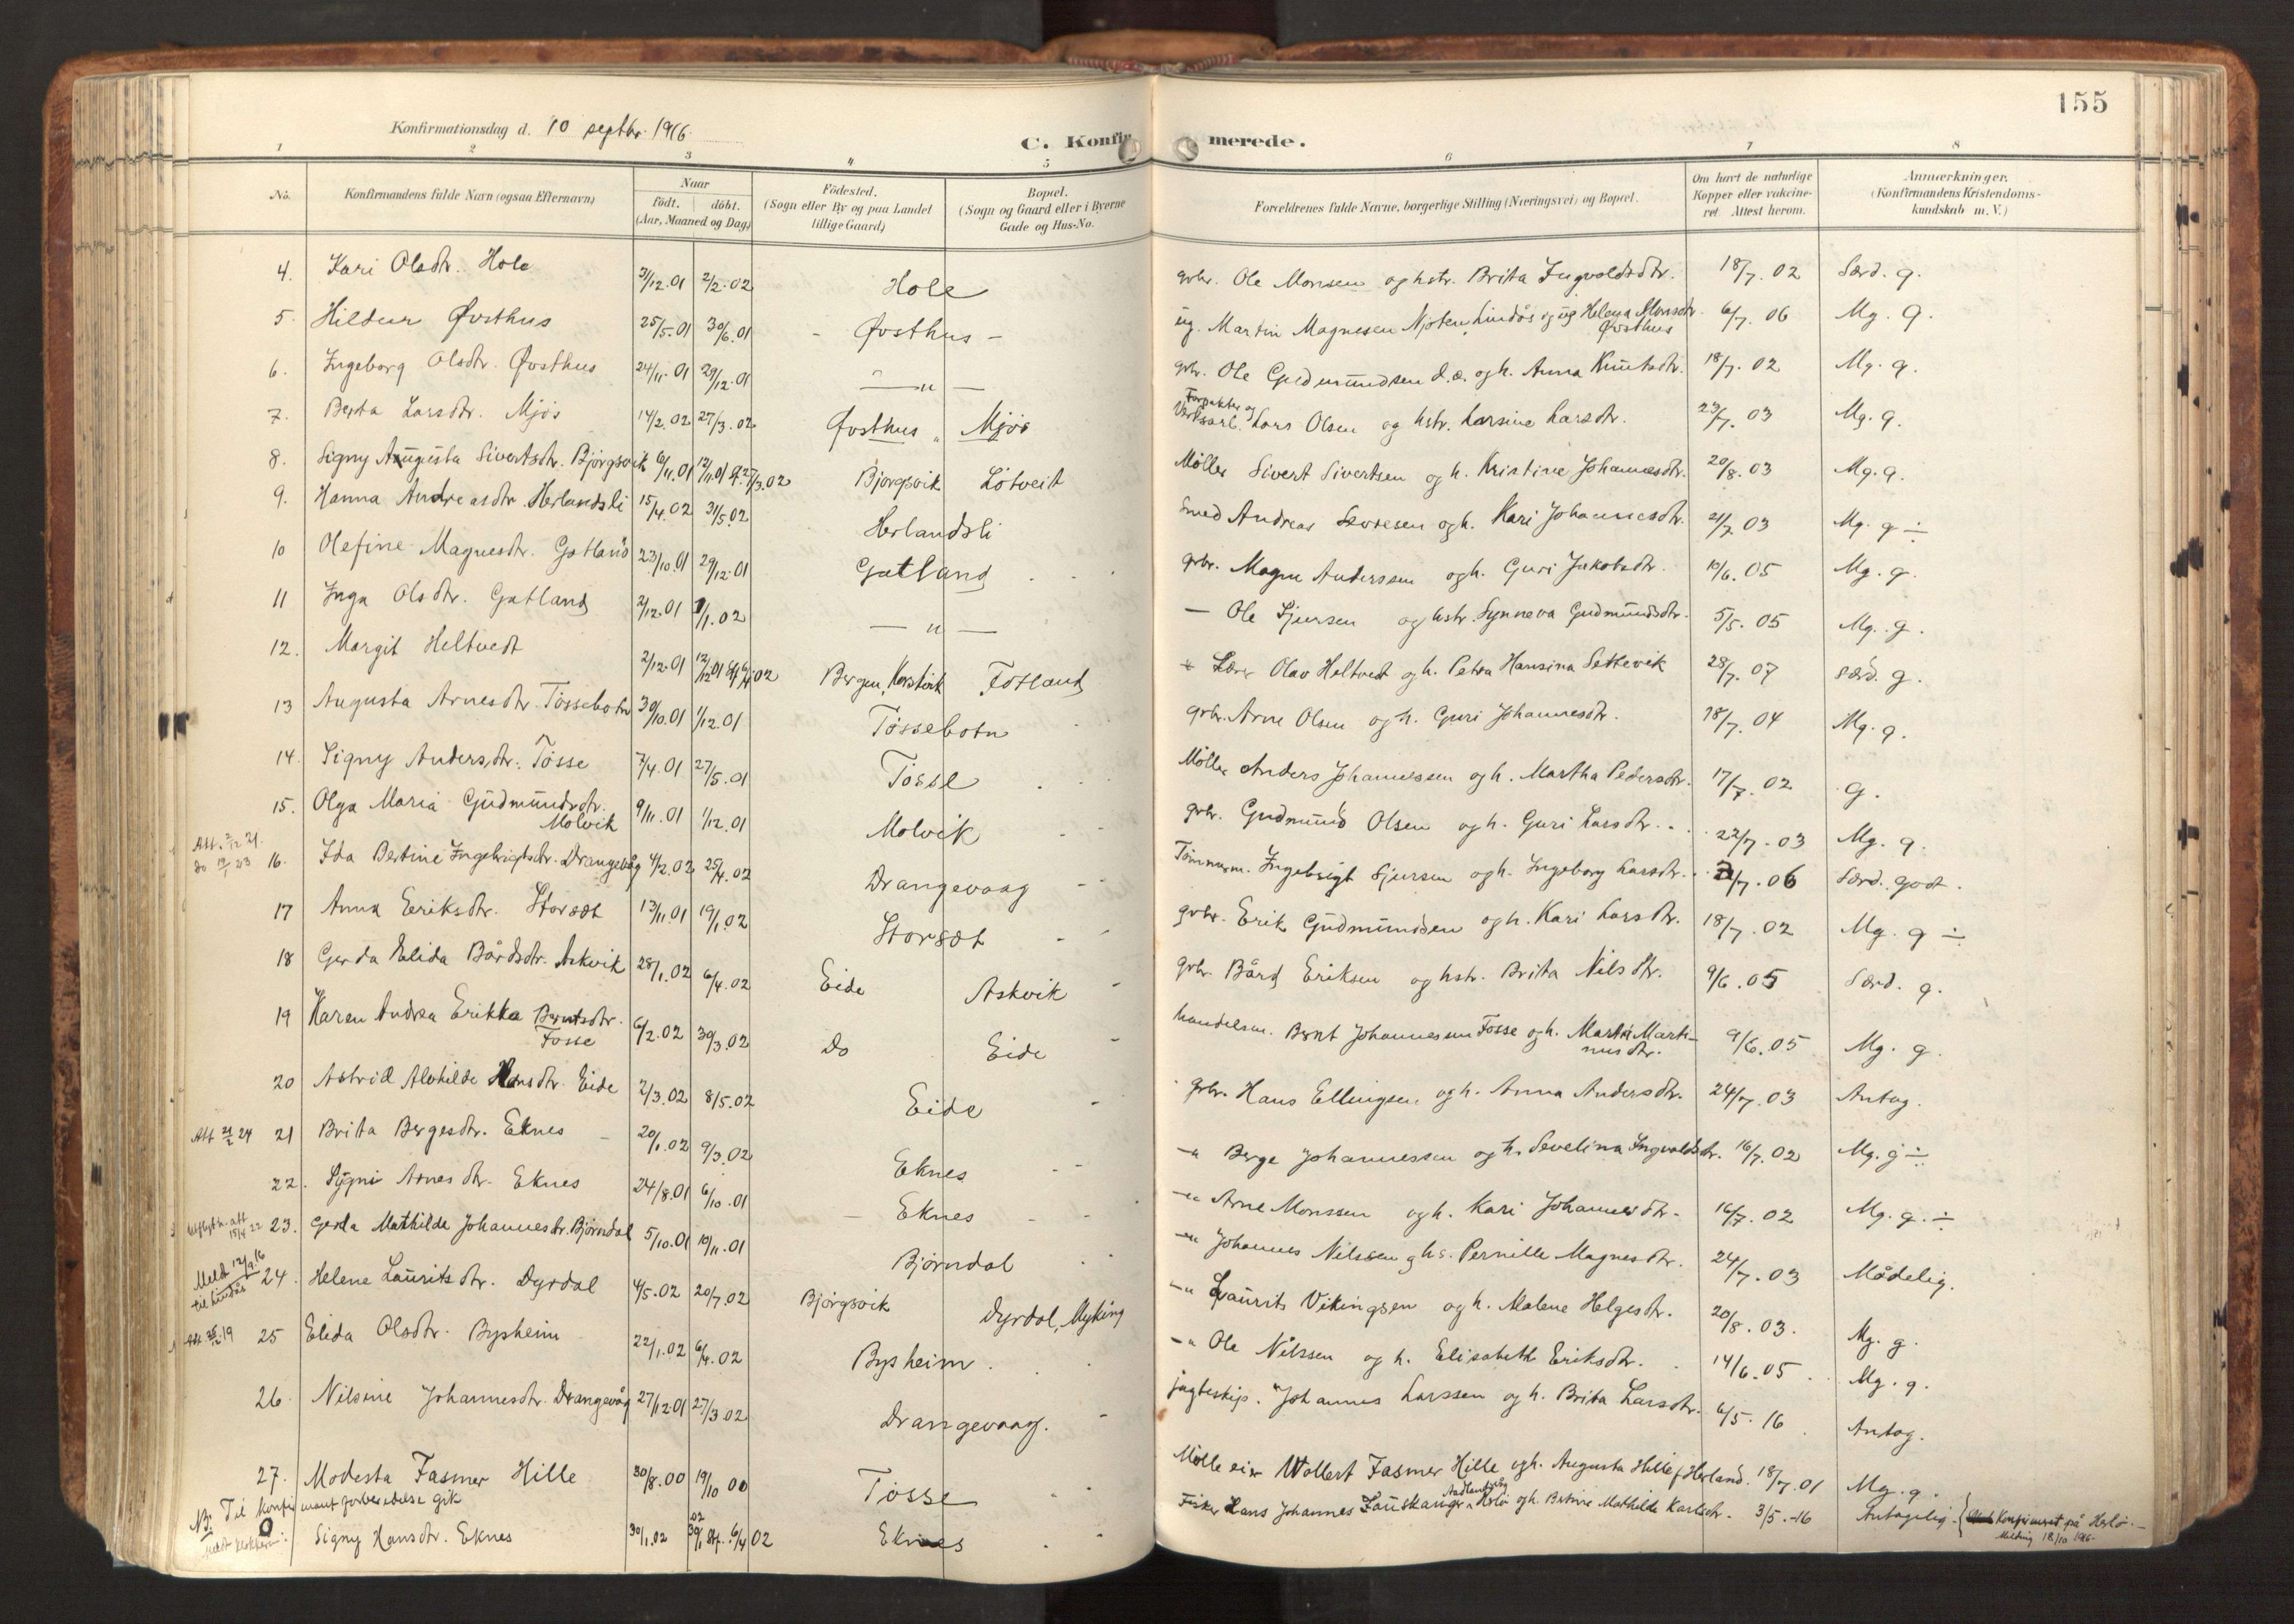 155
Konfirmationsdag d. 10 septbr. 1916.
C. Konfirmerede.
1 2 3 4 5 6 7 8
No. Konfirmandens fulde Navn (ogsaa Efternavn) Naar født. døbt. (Aar, Maaned og Dag) Födested. (Sogn eller By og paa Landet tillige Gaard) Bopæl. (Sogn og Gaard eller i Byerne Gade og Hus-No. Forældrenes fulde Navne, borgerlige Stilling (Næringsvei) og Bopæl. Om havt de naturlige Kopper eller vakcineret. Attest herom. Anmærkninger. (Konfirmandens Kristendomskundskab m. V.)
4. Kari Olsdtr. Hole 3/12.01 2/2.02 Hole gbr. Ole Monsen og hstr. Brita Ingvoldsdtr. 18/7. 02 Særd. g.
5. Hildur Øvsthus 25/5.01 30/6.01 - Øvsthus - ug. Martin Magnesen Njøten, Lindås og ug Helena Monsdtr. Øvsthus 6/7. 06 Mg. g.
6. Ingeborg Olsdtr. Øvsthus 24/11.01 29/12.01 — " — gbr. Ole Gudmundsen d.æ. og h. Anna Knutsdtr. 18/7. 02 Mg. g.
7. Berta Larsdtr. Mjøs 14/2.02 27/3.02 Øvsthus " Mjøs Forpakter og Verksarb. Lars Olsen og hstr. Larsine Larsdtr. 23/7. 03 Mg. g.
8. Signy Augusta Sivertsdtr. Bjørgsvik 6/11.01 12/11.01 St. 27/3.02 Bjørgsvik Løtveit Møller Sivert Sivertsen og h. Kristine Johannesdtr. 20/8. 03 Mg. g.
9. Hanna Andreasdtr. Herlandsli 15/4.02 31/5.02 Herlandsli Smed Andreas og h. Kari Johannesdtr. 21/7. 03 Mg. g ÷
10 Olefine Magnesdtr. Gatland 23/10.01 29/12.01 Gatland gbr. Magne Anderssen og h. Guri Jakobsdtr. 10/6. 05 Mg. g.
11 Inga Olsdtr. Gatland 2/12.01 1/1.02 — " — — Ole Sjursen og hstr. Synneva Gudmundsdtr. 5/5. 05 Mg. g.
12. Margit Heltvedt 2/12.01 12/12.01 St. 02 Bergen, Korskirk Fotland Lærer Olav Holtvedt og h. Petra Hansina Settevik 28/7. 07 Særd. g.
13 Augusta Arnesdtr. Tossebotn 30/10.01 1/12.01 Tossebotn gbr. Arne Olsen og h. Guri Johannesdtr. 18/7. 04 Mg. g.
14. Signy Andersdtr. Tosse 7/4.01 27/5.01 Tosse Møller Anders Johannessen og h. Martha Pedersdtr. 17/7. 02 g.
15. Olga Maria Gudmundsdtr. Molvik 9/11.01 1/12.01 Molvik gbr. Gudmund Olsen og h. Guri Larsdtr. 22/7. 03 Mg. g.
Att. 2/12 21. do 19/1 23 16. Ida Bertine Ingebrigtsdtr. Drangevåg 4/2.02 25/4.02 Drangevaag Tømmerm. Ingebrigt Sjursen og h. Ingeborg Larsdtr. /7. 06 Særd. godt.
17 Anna Eriksdtr. Storset 13/11.01 19/1.02 Storset gbr. Erik Gudmundsen og h. Kari Larsdtr. 18/7. 02 Mg. g ÷
18 Gerda Elida Bårdsdtr. Askvik 28/1.02 6/4.02 Eide Askvik gbr. Bård Eriksen og hstr. Brita Nilsdtr. 9/6. 05 Særd. g.
19 Karen Andrea Erikka Berntsdtr. Fosse 6/2.02 30/3.02 Do Eide handelsm. Bernt Johannesen Fosse og h. Marta Martinusdtr. 9/6. 05 Mg. g.
20 Astrid Alvhilde Hansdtr. Eide 2/3.02 8/5.02 Eide gbr. Hans Ellingsen og h. Anna Andersdtr. 24/7. 03 Antag.
Att 21/2 24 21 Brita Bergesdtr. Eknes 20/1.02 9/3.02 Eknes -" Berge Johannessen og h. Sevelina Ingvoldsdtr. 16/7. 02 Mg. g ÷
22. Sygni Arnesdtr. Eknes 24/8.01 6/10.01 Eknes -" Arne Monssen og h. Kari Johannesdtr. 16/7. 02 Mg. g. ÷
Utflytn. att 15/4 22 23. Gerda Mathilde Johannesdtr. Bjørndal 5/10.01 10/11.01 Bjørndal -" Johannes Nilssen og hs. Pernille Magnesdtr. 24/7. 03 Mådelig.
Meld 12/9.16 til Lindås 24. Helene Lauritsdtr. Dyrdal 4/5.02 20/7.02 Bjørgsvik Dyrdal, Myking -" Laurits Vikingsen og h. Malene Helgesdtr. 20/8. 03. Mg. g.
Att 19 25 Elida Olsdtr. Bysheim 22/1.02 6/4.02 Bysheim. -" Ole Nilssen og h. Elisabeth Eriksdtr. 14/6. 05 Mg. g.
26. Nilsine Johannesdtr. Drangevåg 27/12.01 27/3.02 Drangevaag. jagteskip. Johannes Larssen og h. Brita Larsdtr. 6/5. 16 Antag.
27. Modesta Fasmer Hille 30/8.00 19/10 00 Tosse Mølleeier Wollert Fasmer Hille og h. Augusta Hille f. Herland. 18/7. 01 Mg. g.
NB: Til konfirmantforberedelse gik
Meldt klokkeren: Signy Hansdtr. Eknes 30/1.02 St. 6/4 02 Eknes Fisker Hans Johannes Herlø og h. Betine Mathilde Karlsdtr. 3/5.-16 Antagelig. { Konfirmeret på Herlø. — Melding 18/10 1916.